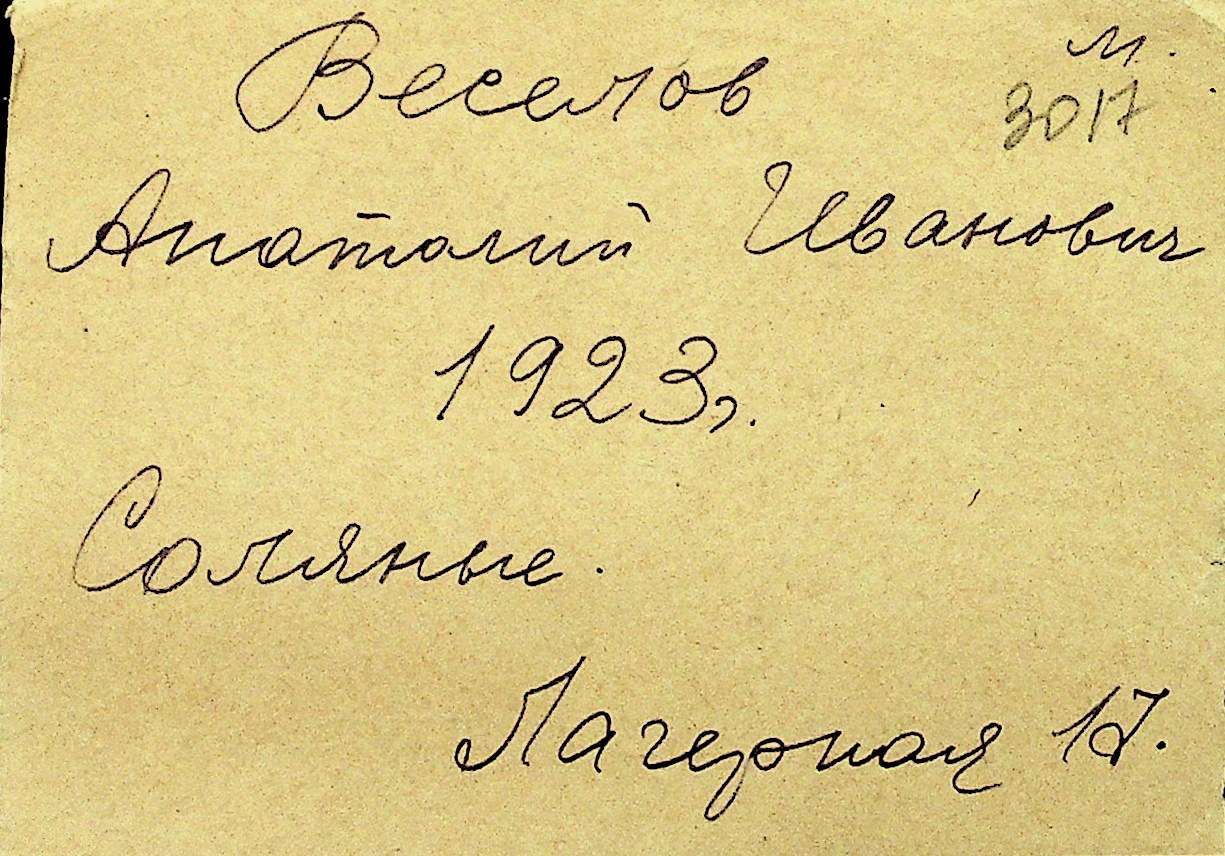 Веселов
м.
3017
Анатолий Иванович
1923г.
Соляные.
Лагерная 17.